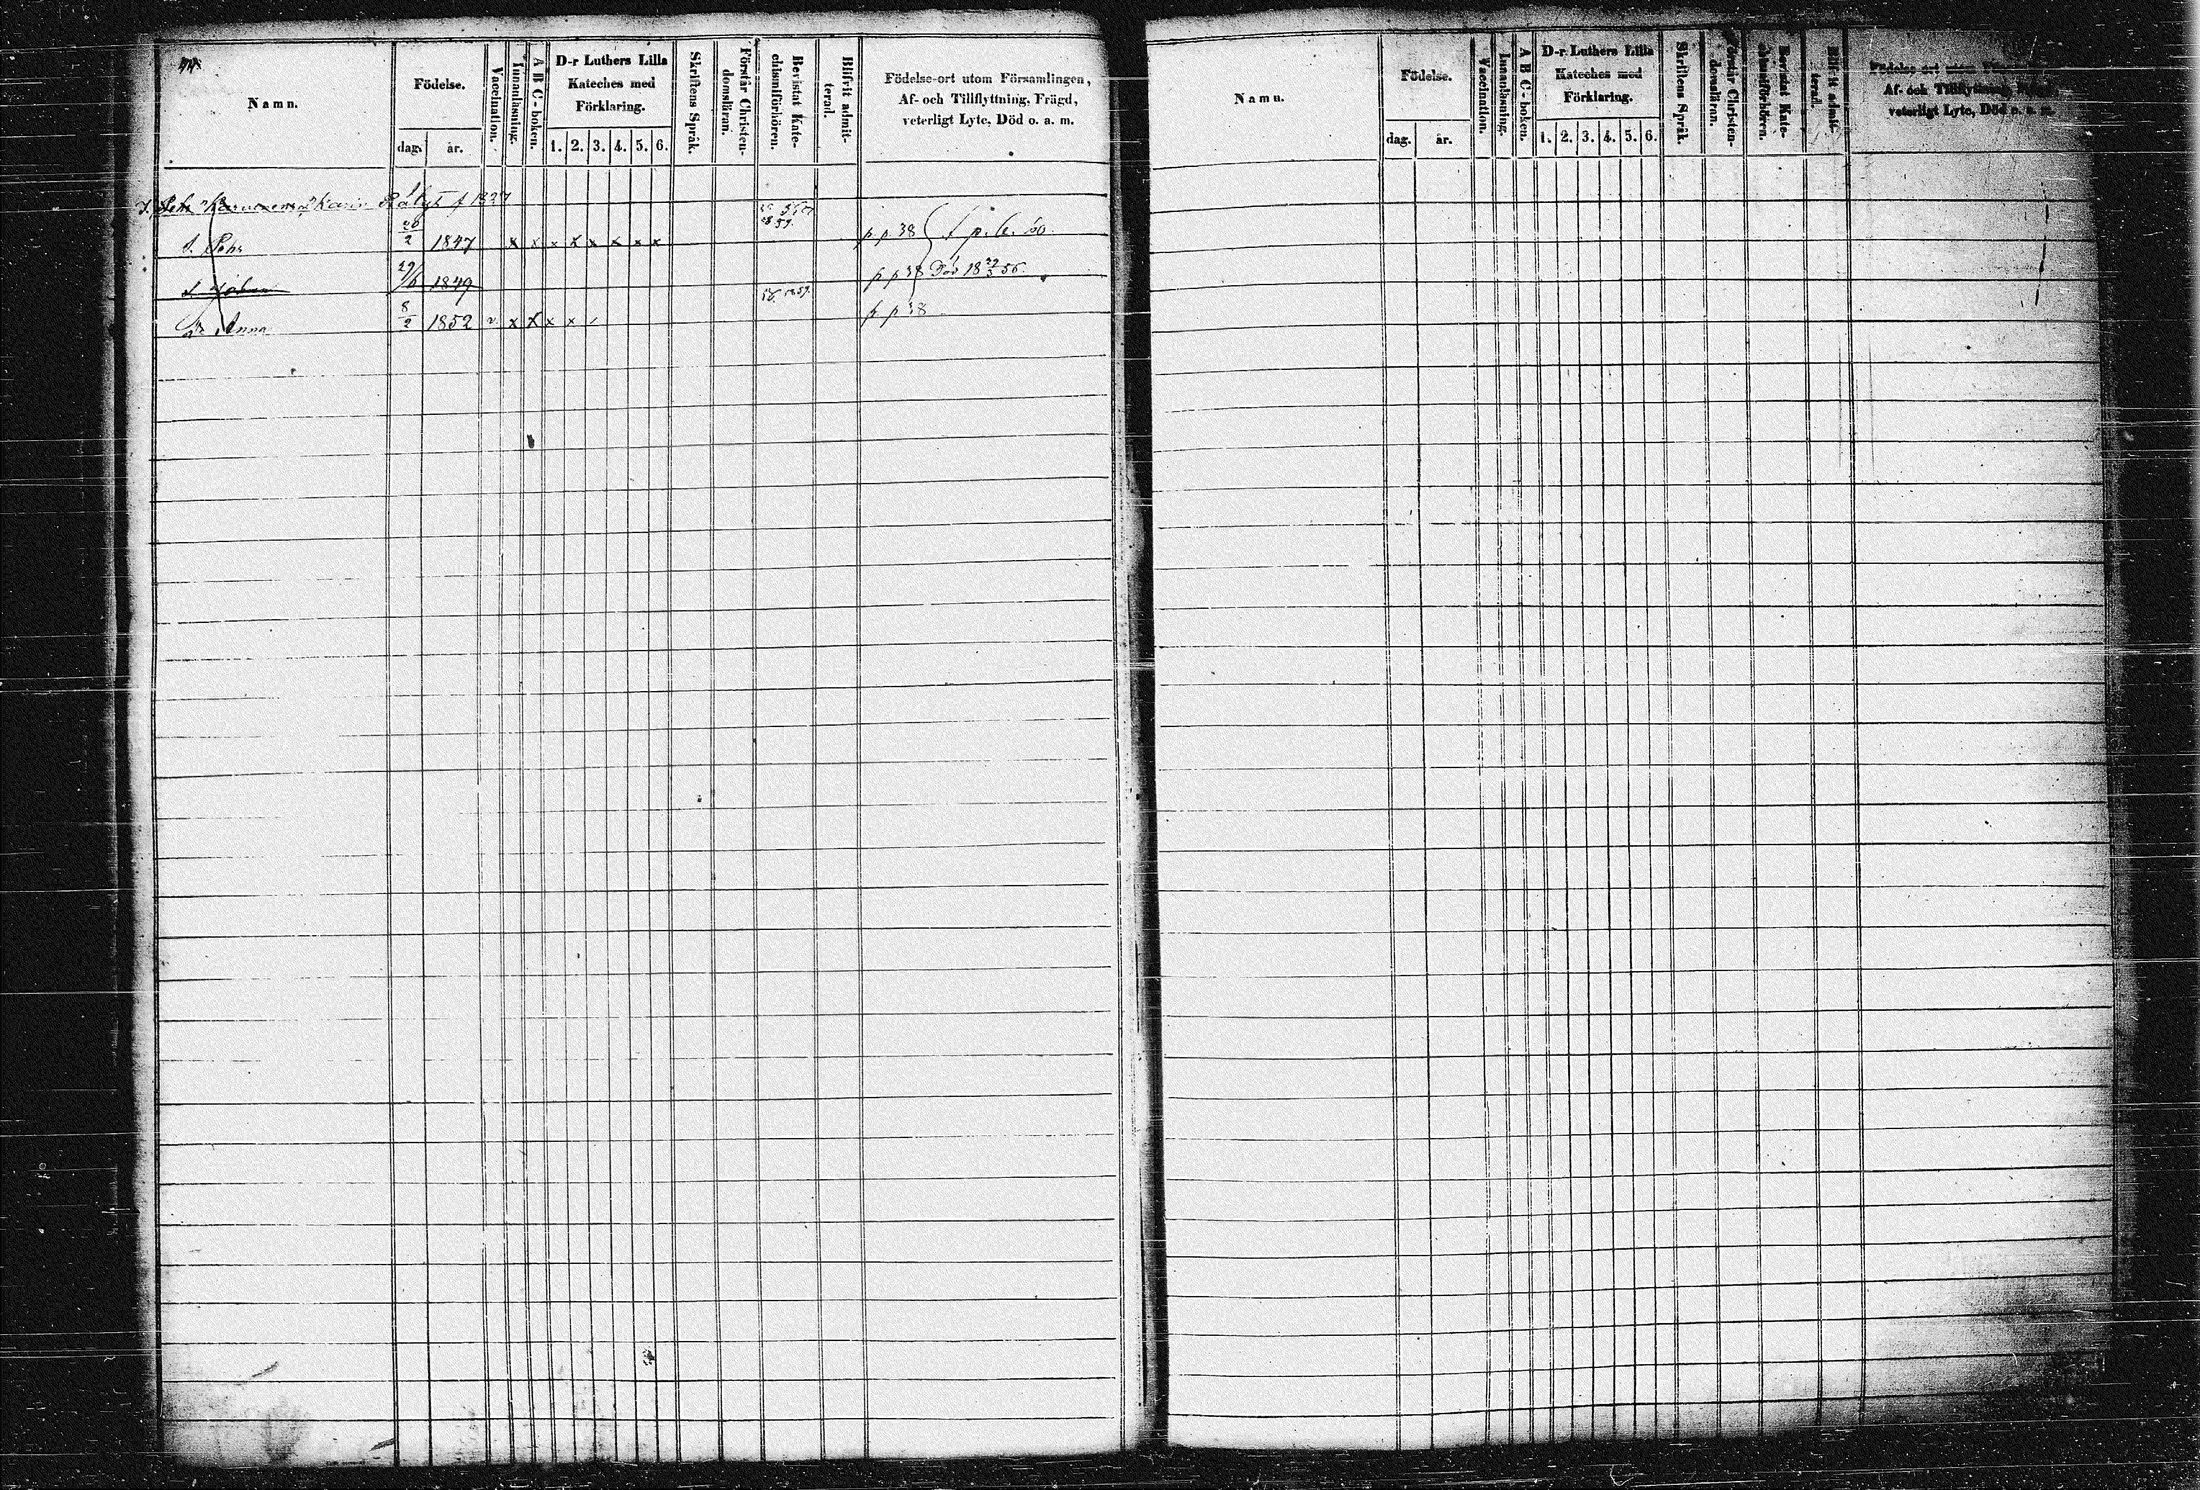 44.
Namn.
Födelse.
dag. år.
Vaccination.
Innanläsning.
A B C-boken.
D-r Luthers Lilla
Kateches med
Förklaring.
1. 2. 3. 4. 5. 6.
Skriftens Språk.
Förstår Christen-
domsläran.
Bevistat Kate-
chismiförhören.
Blifvit admit-
terad.
Födelse-ort utom Församlingen,
Af- och Tillflyttning, Frägd,
veterligt Lyte, Död o. a. m.
Karin
S. Pehr 26/2 1847 x x x x x x x x p p 38
S. Johan 29/6 1849 p p 38 Död 18 5 56.
Anna 8/2 1852 v. x x x x p p 38
Namn.
Födelse.
dag. år.
Vaccination.
Innanläsning.
A B C-boken.
D-r Luthers Lilla
Kateches med
Förklaring.
1. 2. 3. 4. 5. 6.
Skriftens Språk.
Förstår Christen-
domsläran.
Bevistat Kate-
chismiförhören.
Blifvit admit-
terad.
Födelse-ort utom
Af- och Tillflyttning,
veterligt Lyte, Död o. a. m.